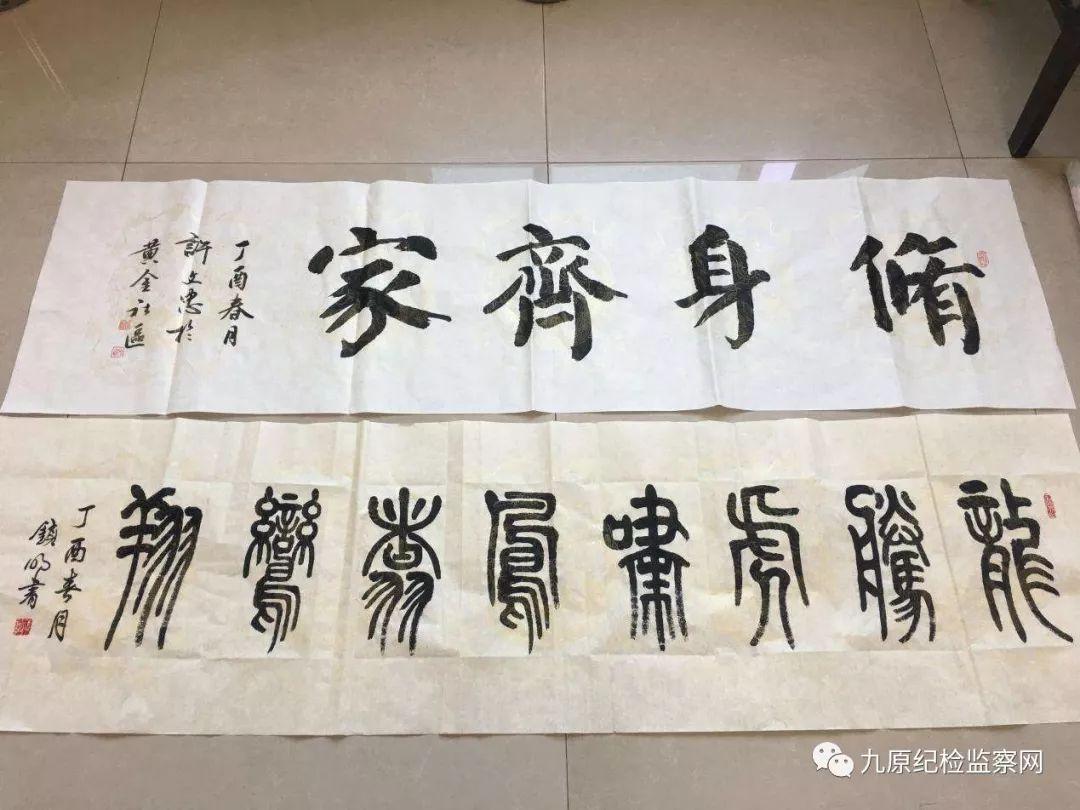 脩身齊家
丁酉春月
許忠於
黄金社區
龍騰虎嘯鳳翥鸞翔
丁酉春月
鎮明書
九原纪检监察网